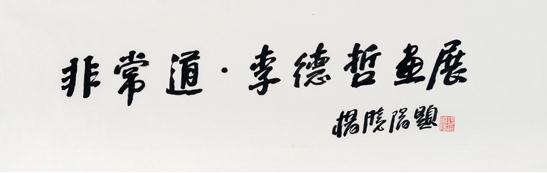 非常道·李德哲画展
杨晓阳题